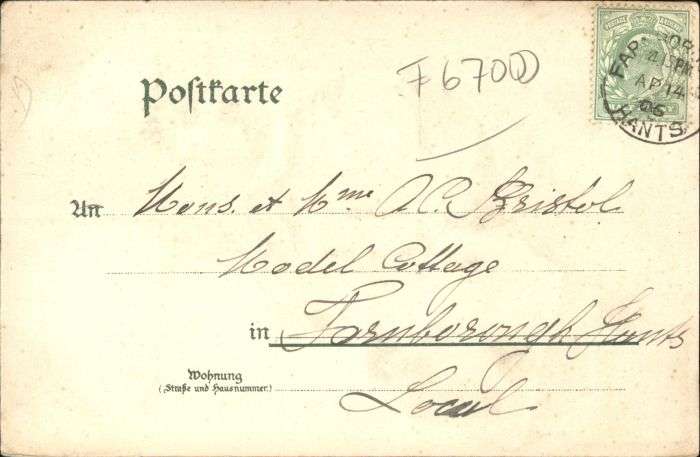 F 670
Postkarte
FAR
AP 14
06
HANTS
An Mons. et Mme A.C. Bristol
Model Cottage
in Farnborough Hants
Wohnung
(Straße und Hausnummer)
Local